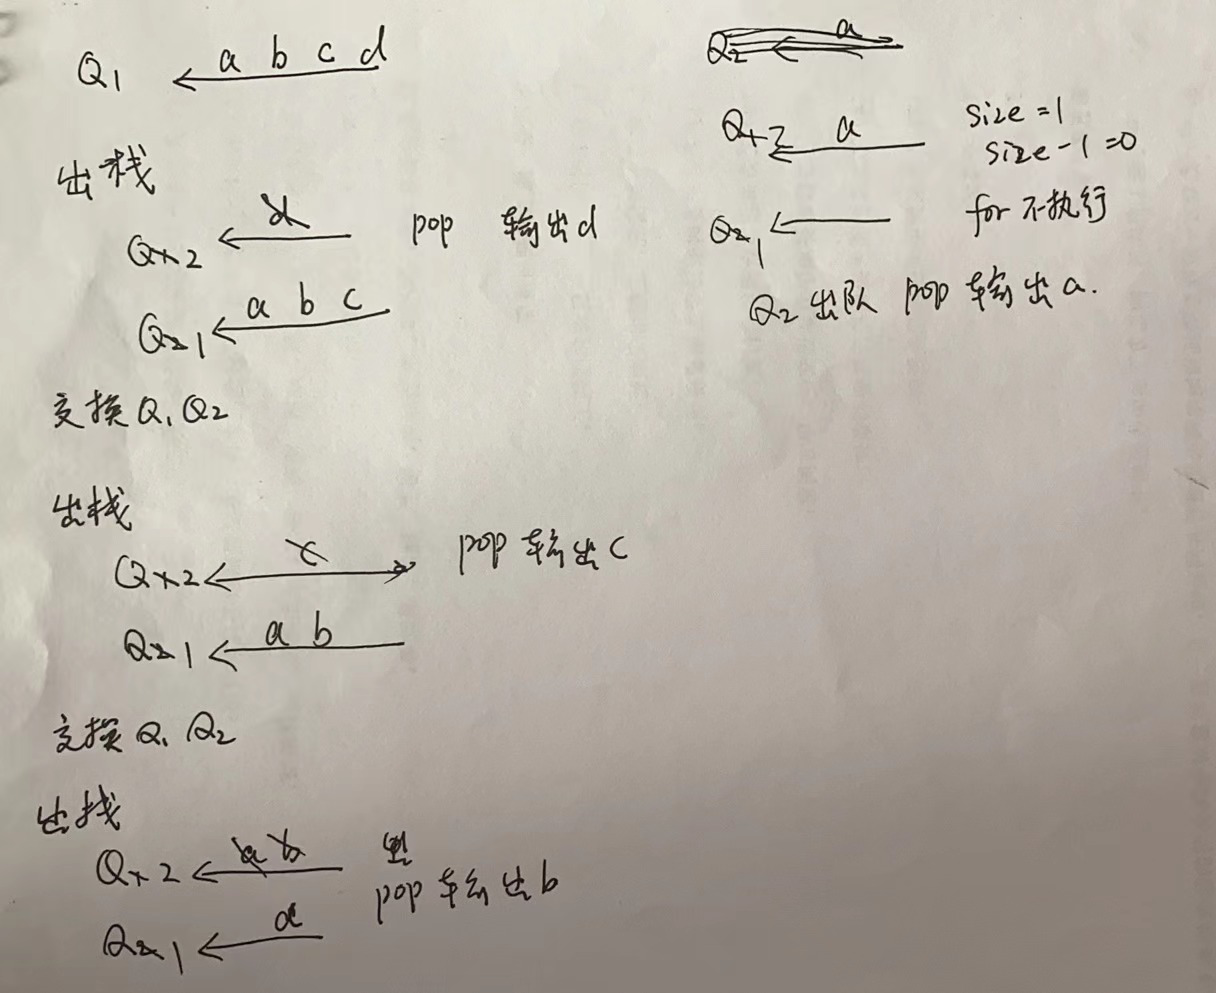 Q1 a b c d
出栈
Q2 d pop 输出d
Q1 a b c
交换Q1 Q2
出栈
Q2 c pop 输出c
Q1 a b
交换Q1 Q2
出栈
Q2 a b
pop 输出b
Q1 a
Q2 a
Q2 a size=1
size-1=0
Q1 for 不执行
Q2 出队 pop 输出a.